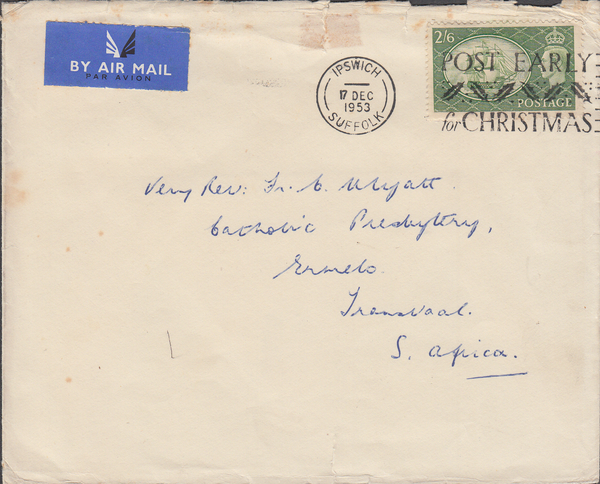 BY AIR MAIL
PAR AVION
IPSWICH
17 DEC
1953
SUFFOLK
2/6
POSTAGE
POST EARLY
for CHRISTMAS
Very Rev: Fr. C. Wyatt.
Catholic Presbytery,
Ermelo.
Transvaal.
S. Africa.